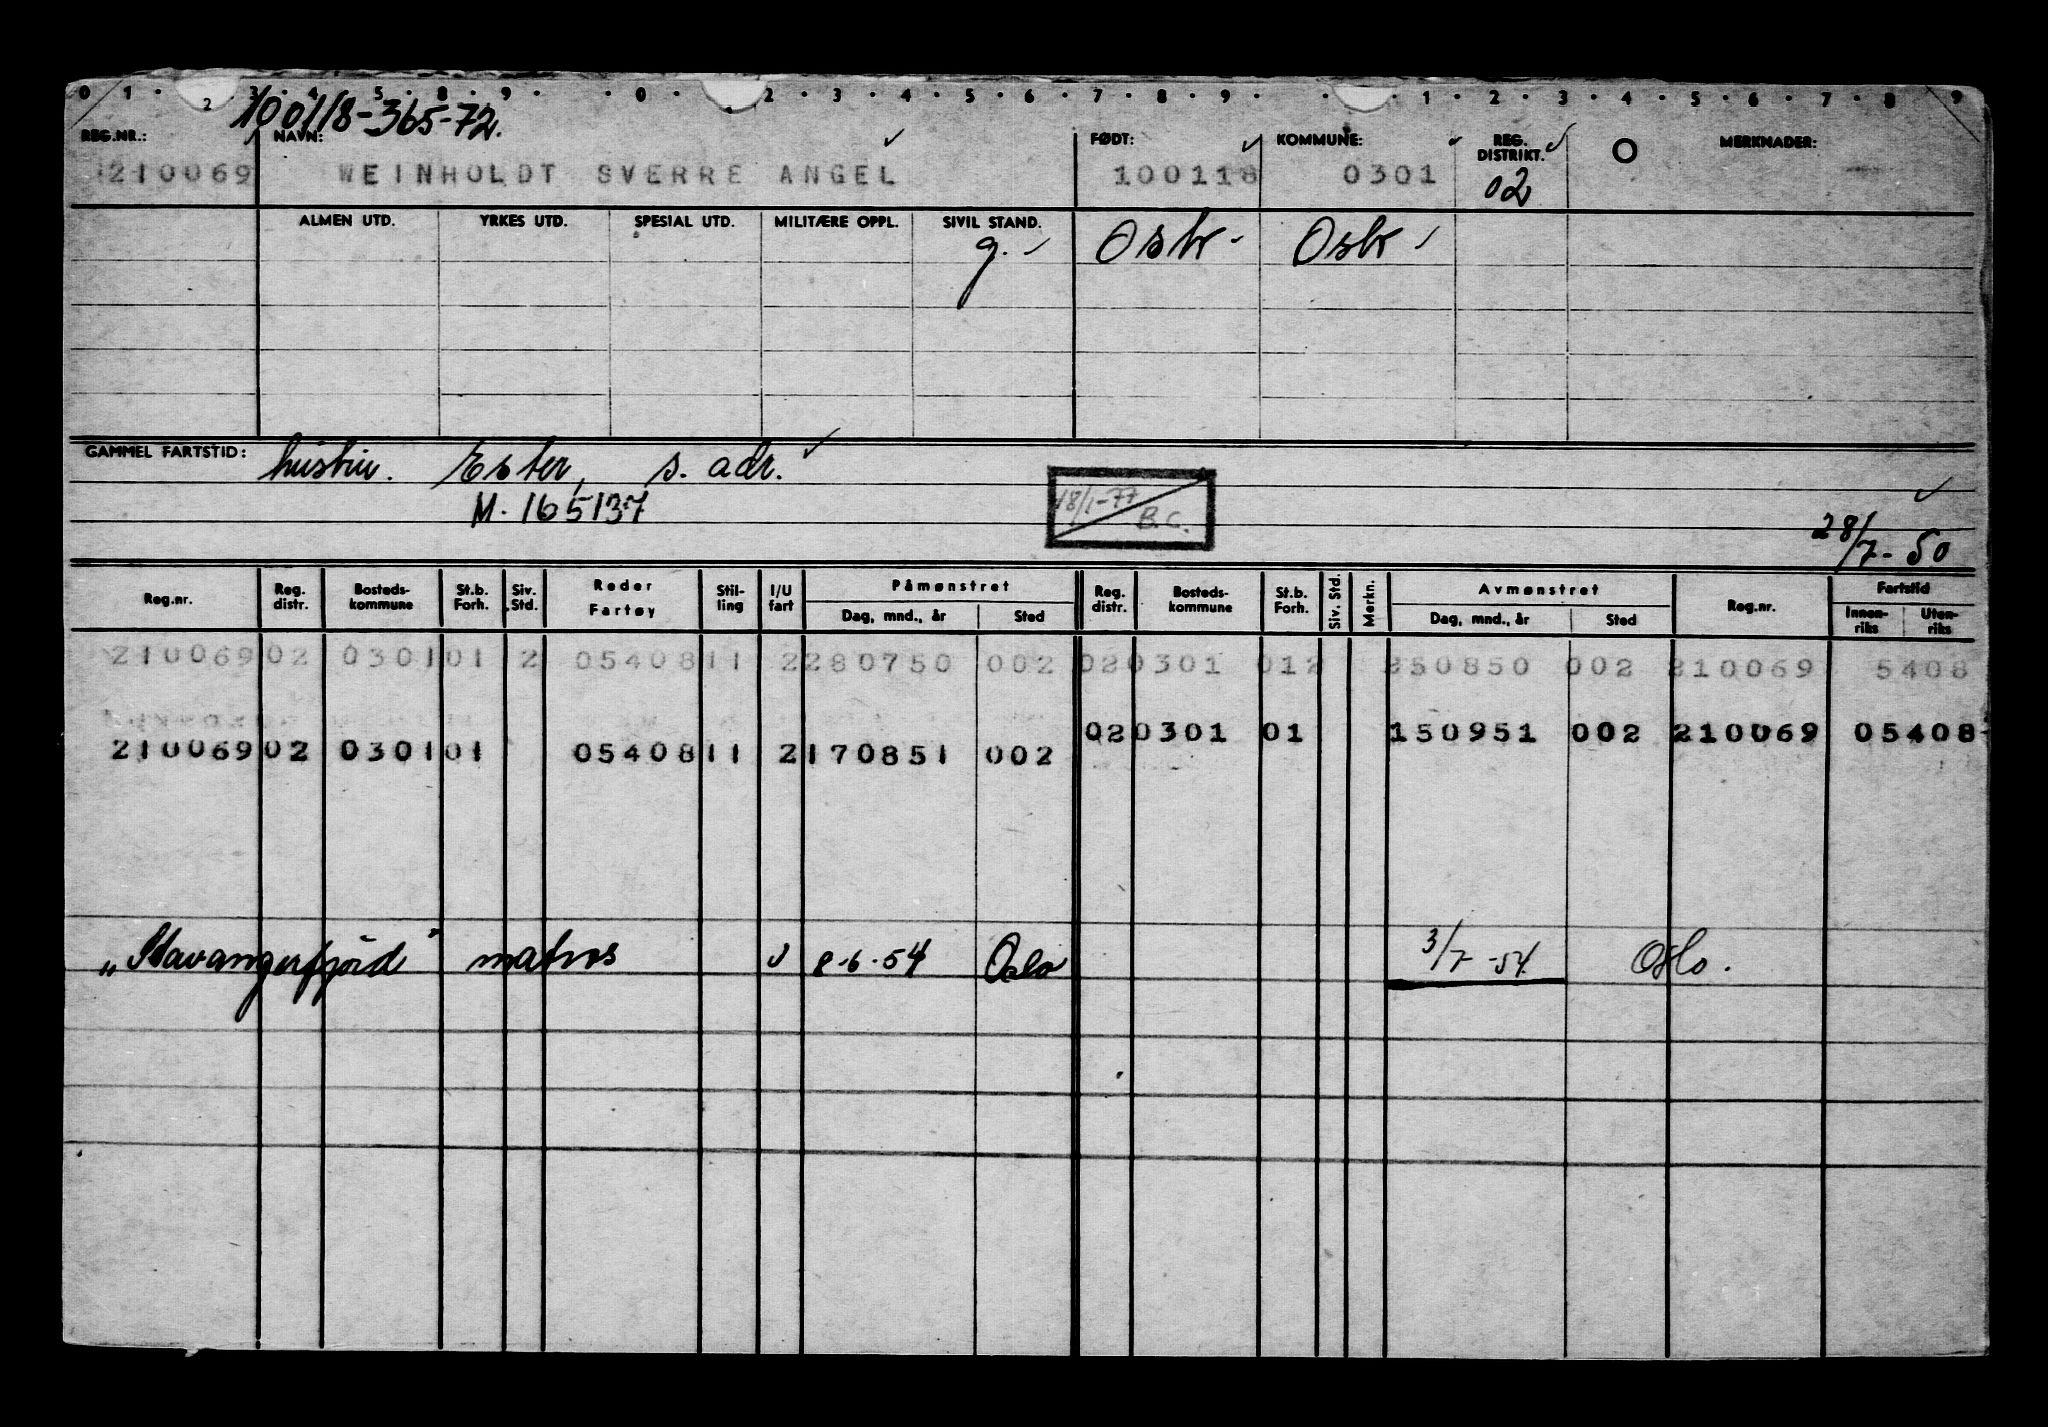 0 1 · 2 3 · 4 · 5 · 8 · 9 · · 0 · · 2 · 3 · 4 · 5 · 6 · 7 · 8 · 9 · · · 1 · 2 · 3 · 4 · 5 · 6 · 7 · 8 · 9
100118-365-72.
REG.NR.: NAVN: FØDT: KOMMUNE: REG. DISTRIKT. O MERKNADER:
210069 WEINHOLDT SVERRE ANGEL 100118 0301 02
ALMEN UTD. YRKES UTD. SPESIAL UTD. MILITÆRE OPPL. SIVIL STAND.
g. Oslo Oslo
GAMMEL FARTSTID: hustru. Ester, s. adr.
M. 165137
18/1-77 B.C.
28/7-50
Reg.nr. Reg. distr. Bosteds-kommune St.b. Forh. Siv. Std. Reder Fartøy Stil-ling I/U fart Påmønstret Reg. distr. Bosteds-kommune St.b. Forh. Siv. Std. Merkn. Avmønstret Reg.nr. Fartstid
Dag, mnd., år Sted Dag, mnd., år Sted Innen-riks Uten-riks
210069 02 0301 01 2 05408 11 2 280750 002 02 0301 01 2 250850 002 210069 5408
02 0301 01 150951 002 210069 05408
210069 02 0301 01 05408 11 2 170851 002
„Stavangerfjord" matros U 8-6-54 Oslo 3/7-54 Oslo.